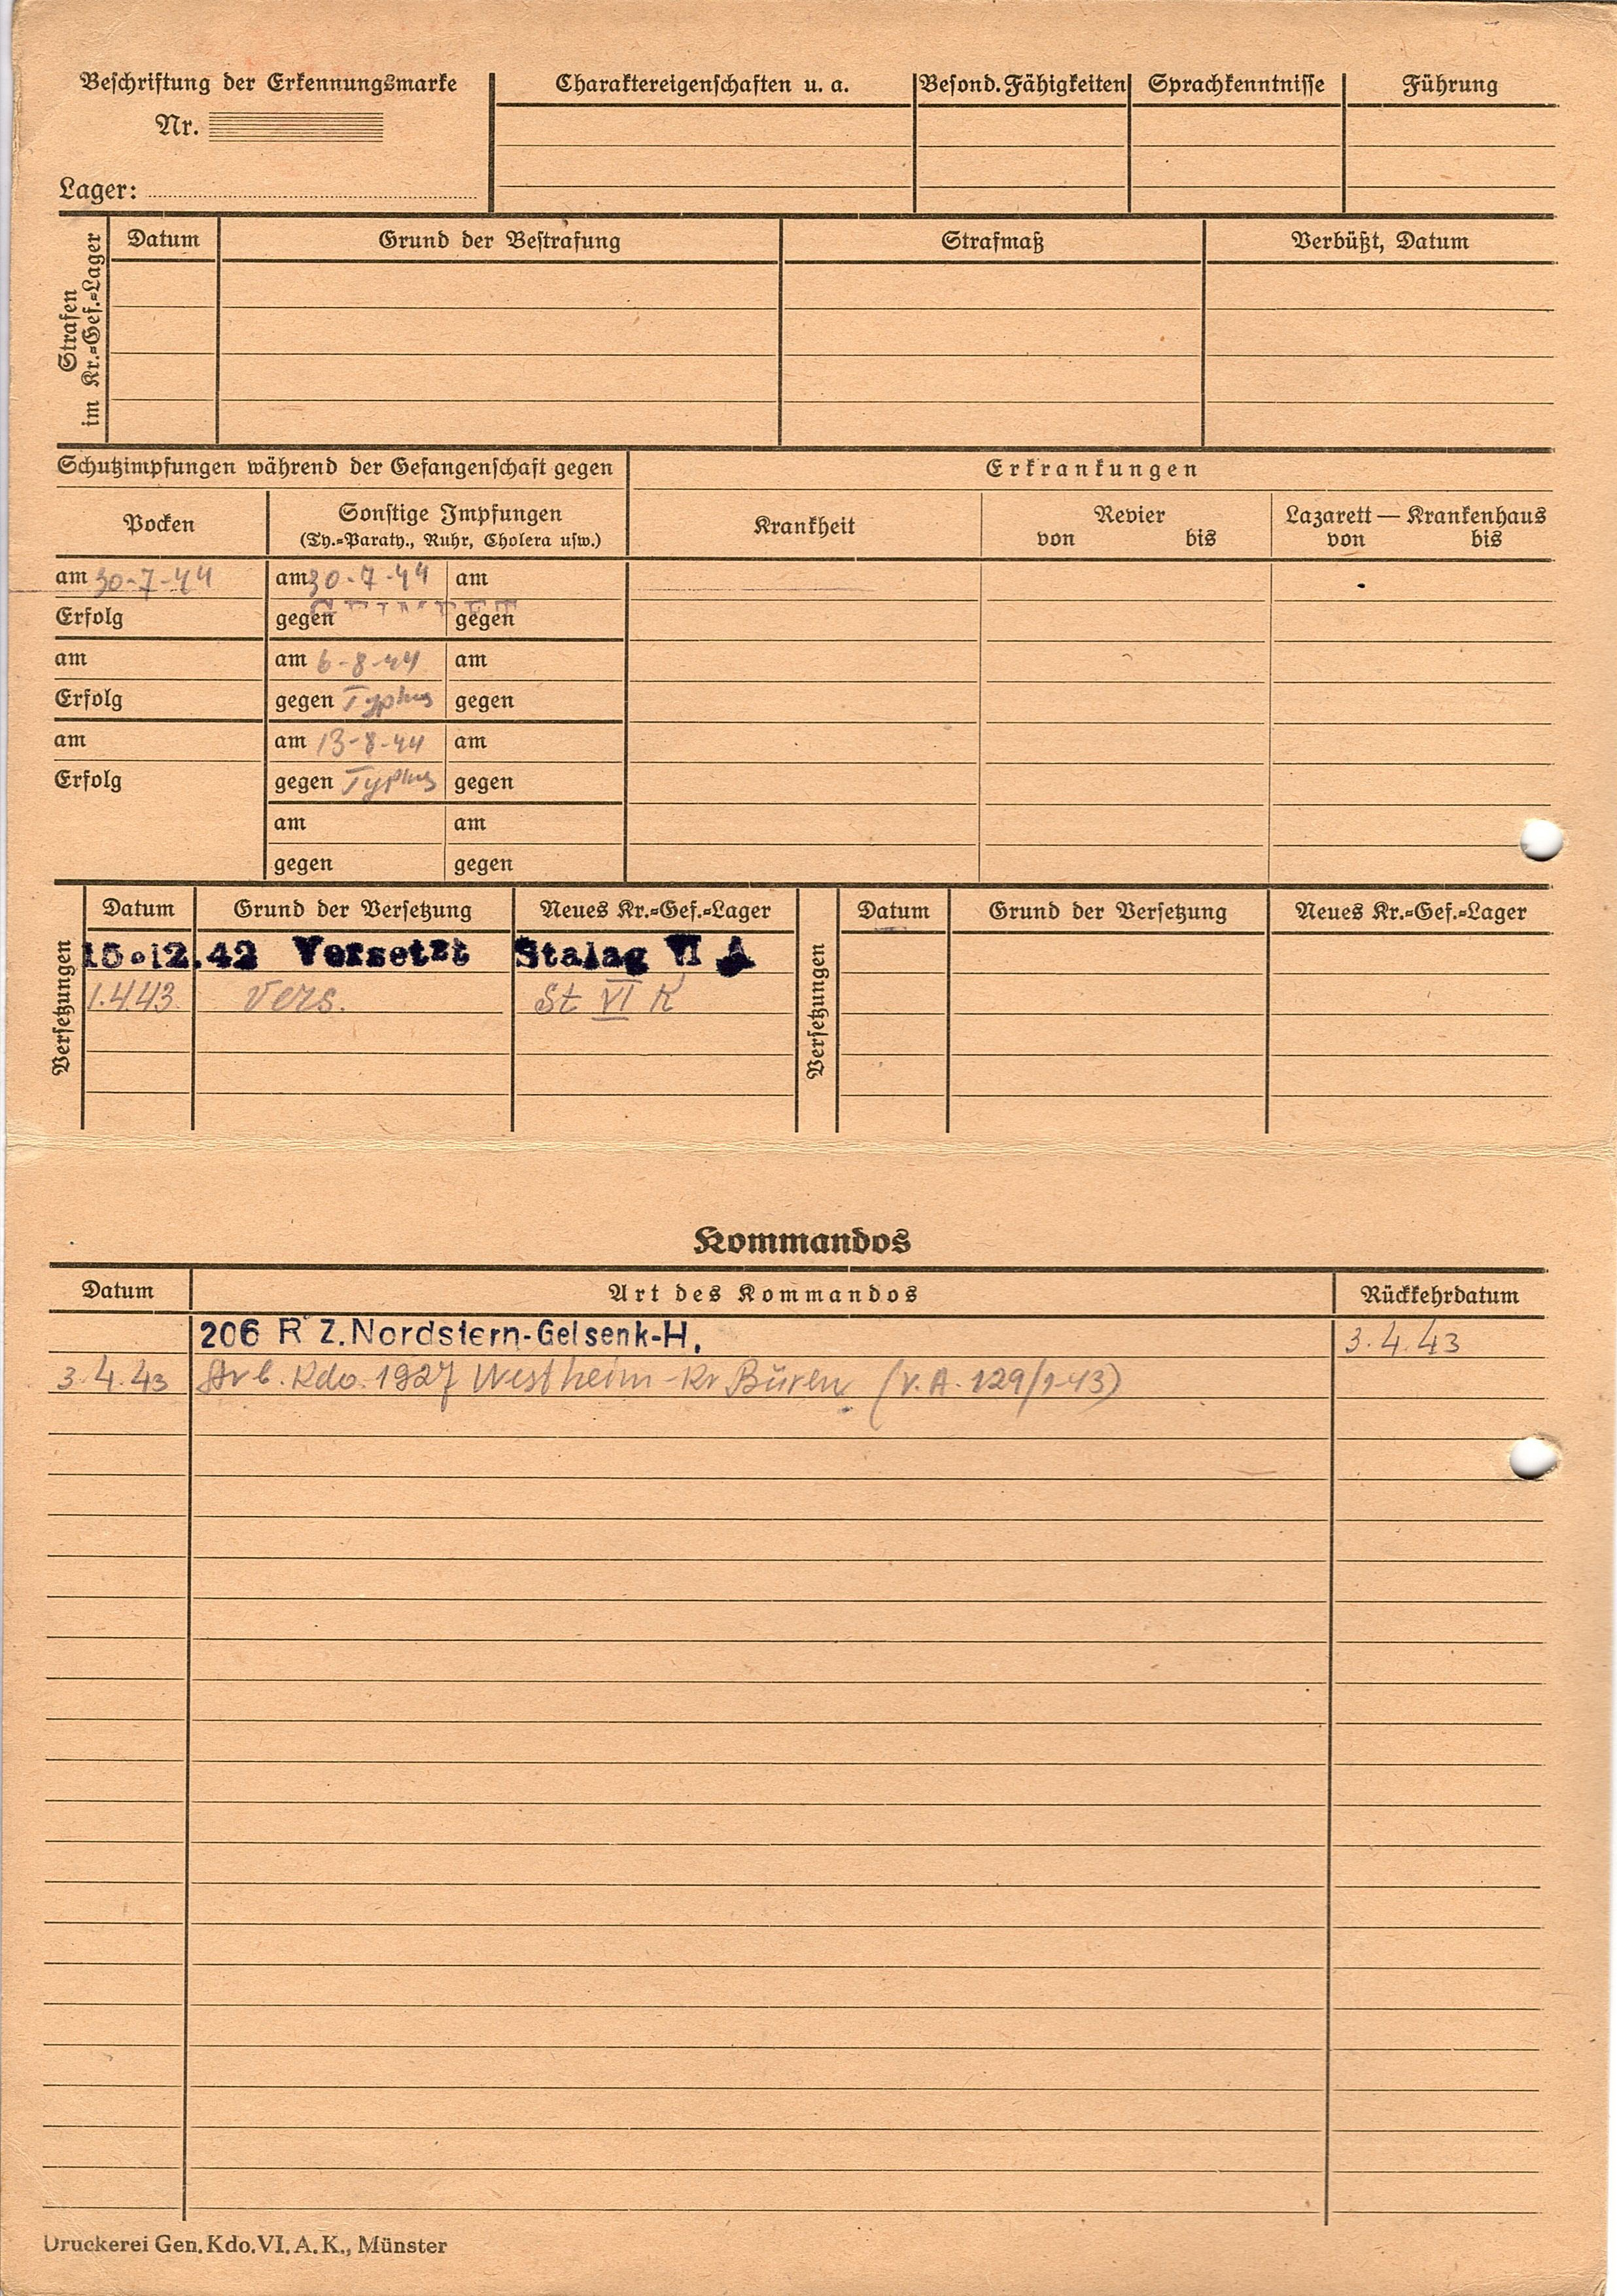 Beschriftung der Erkennungsmarke
Nr.
Lager:
Charaktereigenschaften u. a.
Besond. Fähigkeiten
Sprachkenntnisse
Führung
Strafen
im Kr.=Gef.=Lager
Datum
Grund der Bestrafung
Strafmaß
Verbüßt, Datum
Schutzimpfungen während der Gefangenschaft gegen
Erkrankungen
Pocken
Sonstige Impfungen
(Ty.=Paraty., Ruhr, Cholera usw.)
Krankheit
Revier
von bis
Lazarett — Krankenhaus
von bis
am 30-7-44 am 30-7-44 am
Erfolg gegen gegen
am am 6-8-44 am
Erfolg gegen Typhus gegen
am am 13-8-44 am
Erfolg gegen Typhus gegen
am am
gegen gegen
Versetzungen
Datum Grund der Versetzung Neues Kr.=Gef.=Lager
15.12.42 Versetzt Stalag VI A
1.4.43. Vers. St VI K
Versetzungen
Datum Grund der Versetzung Neues Kr.=Gef.=Lager
Kommandos
Datum Art des Kommandos Rückkehrdatum
206 R Z. Nordstern-Gelsenk-H. 3.4.43
3.4.43 Arb. Kdo. 1927 Westheim-Kr Büren (V.A. 129/1-43)
Druckerei Gen. Kdo. VI. A. K., Münster